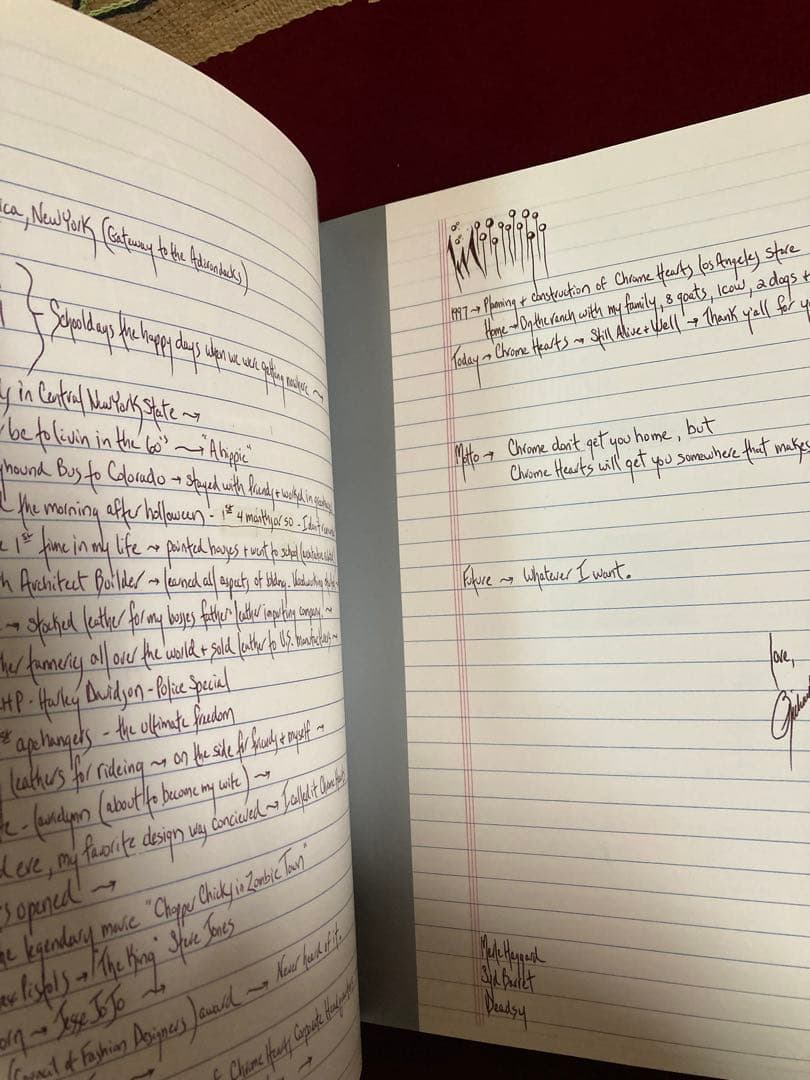 ica, New York (Gateway to the Adirondacks)
Schooldays the happy days when we were getting nowhere →
in Central New York State →
be to livin in the 60's → "A hippie"
yhound Bus to Colorado → stayed with friends + worked in
the morning after holloween - 1st 4 months or so - I don't
1st time in my life → painted houses + went to school
h Architect Builder → learned all aspects of bldng.
→ stocked leather for my bosses father leather importing company →
her tanneries all over the world + sold leather to U.S. manufacturers →
HP - Harley Davidson - Police Special
apehangers - the ultimate freedom
leathers for rideing → on the side for friends + myself →
te - Laurielynn (about to become my wife) →
d eve, my favorite design was concieved → I called it Chrome Hearts
s opened →
he legendary movie "Chopper Chicks in Zombie Town"
ex Pistols → "The King" Steve Jones
orn → Jesse JoJo →
(Council of Fashion Designers) award → Never heard of it.
f Chrome Hearts Corporate Headquarters
→
1997 → Planning + construction of Chrome Hearts Los Angeles store
Home → On the ranch with my family, 8 goats, 1 cow, 2 dogs +
Today → Chrome Hearts → Still Alive + Well → Thank y'all for y
Motto → Chrome don't get you home, but
Chrome Hearts will get you somewhere that makes
Future → Whatever I want.
Love,
Merle Haggard
Syd Barret
Deadsy